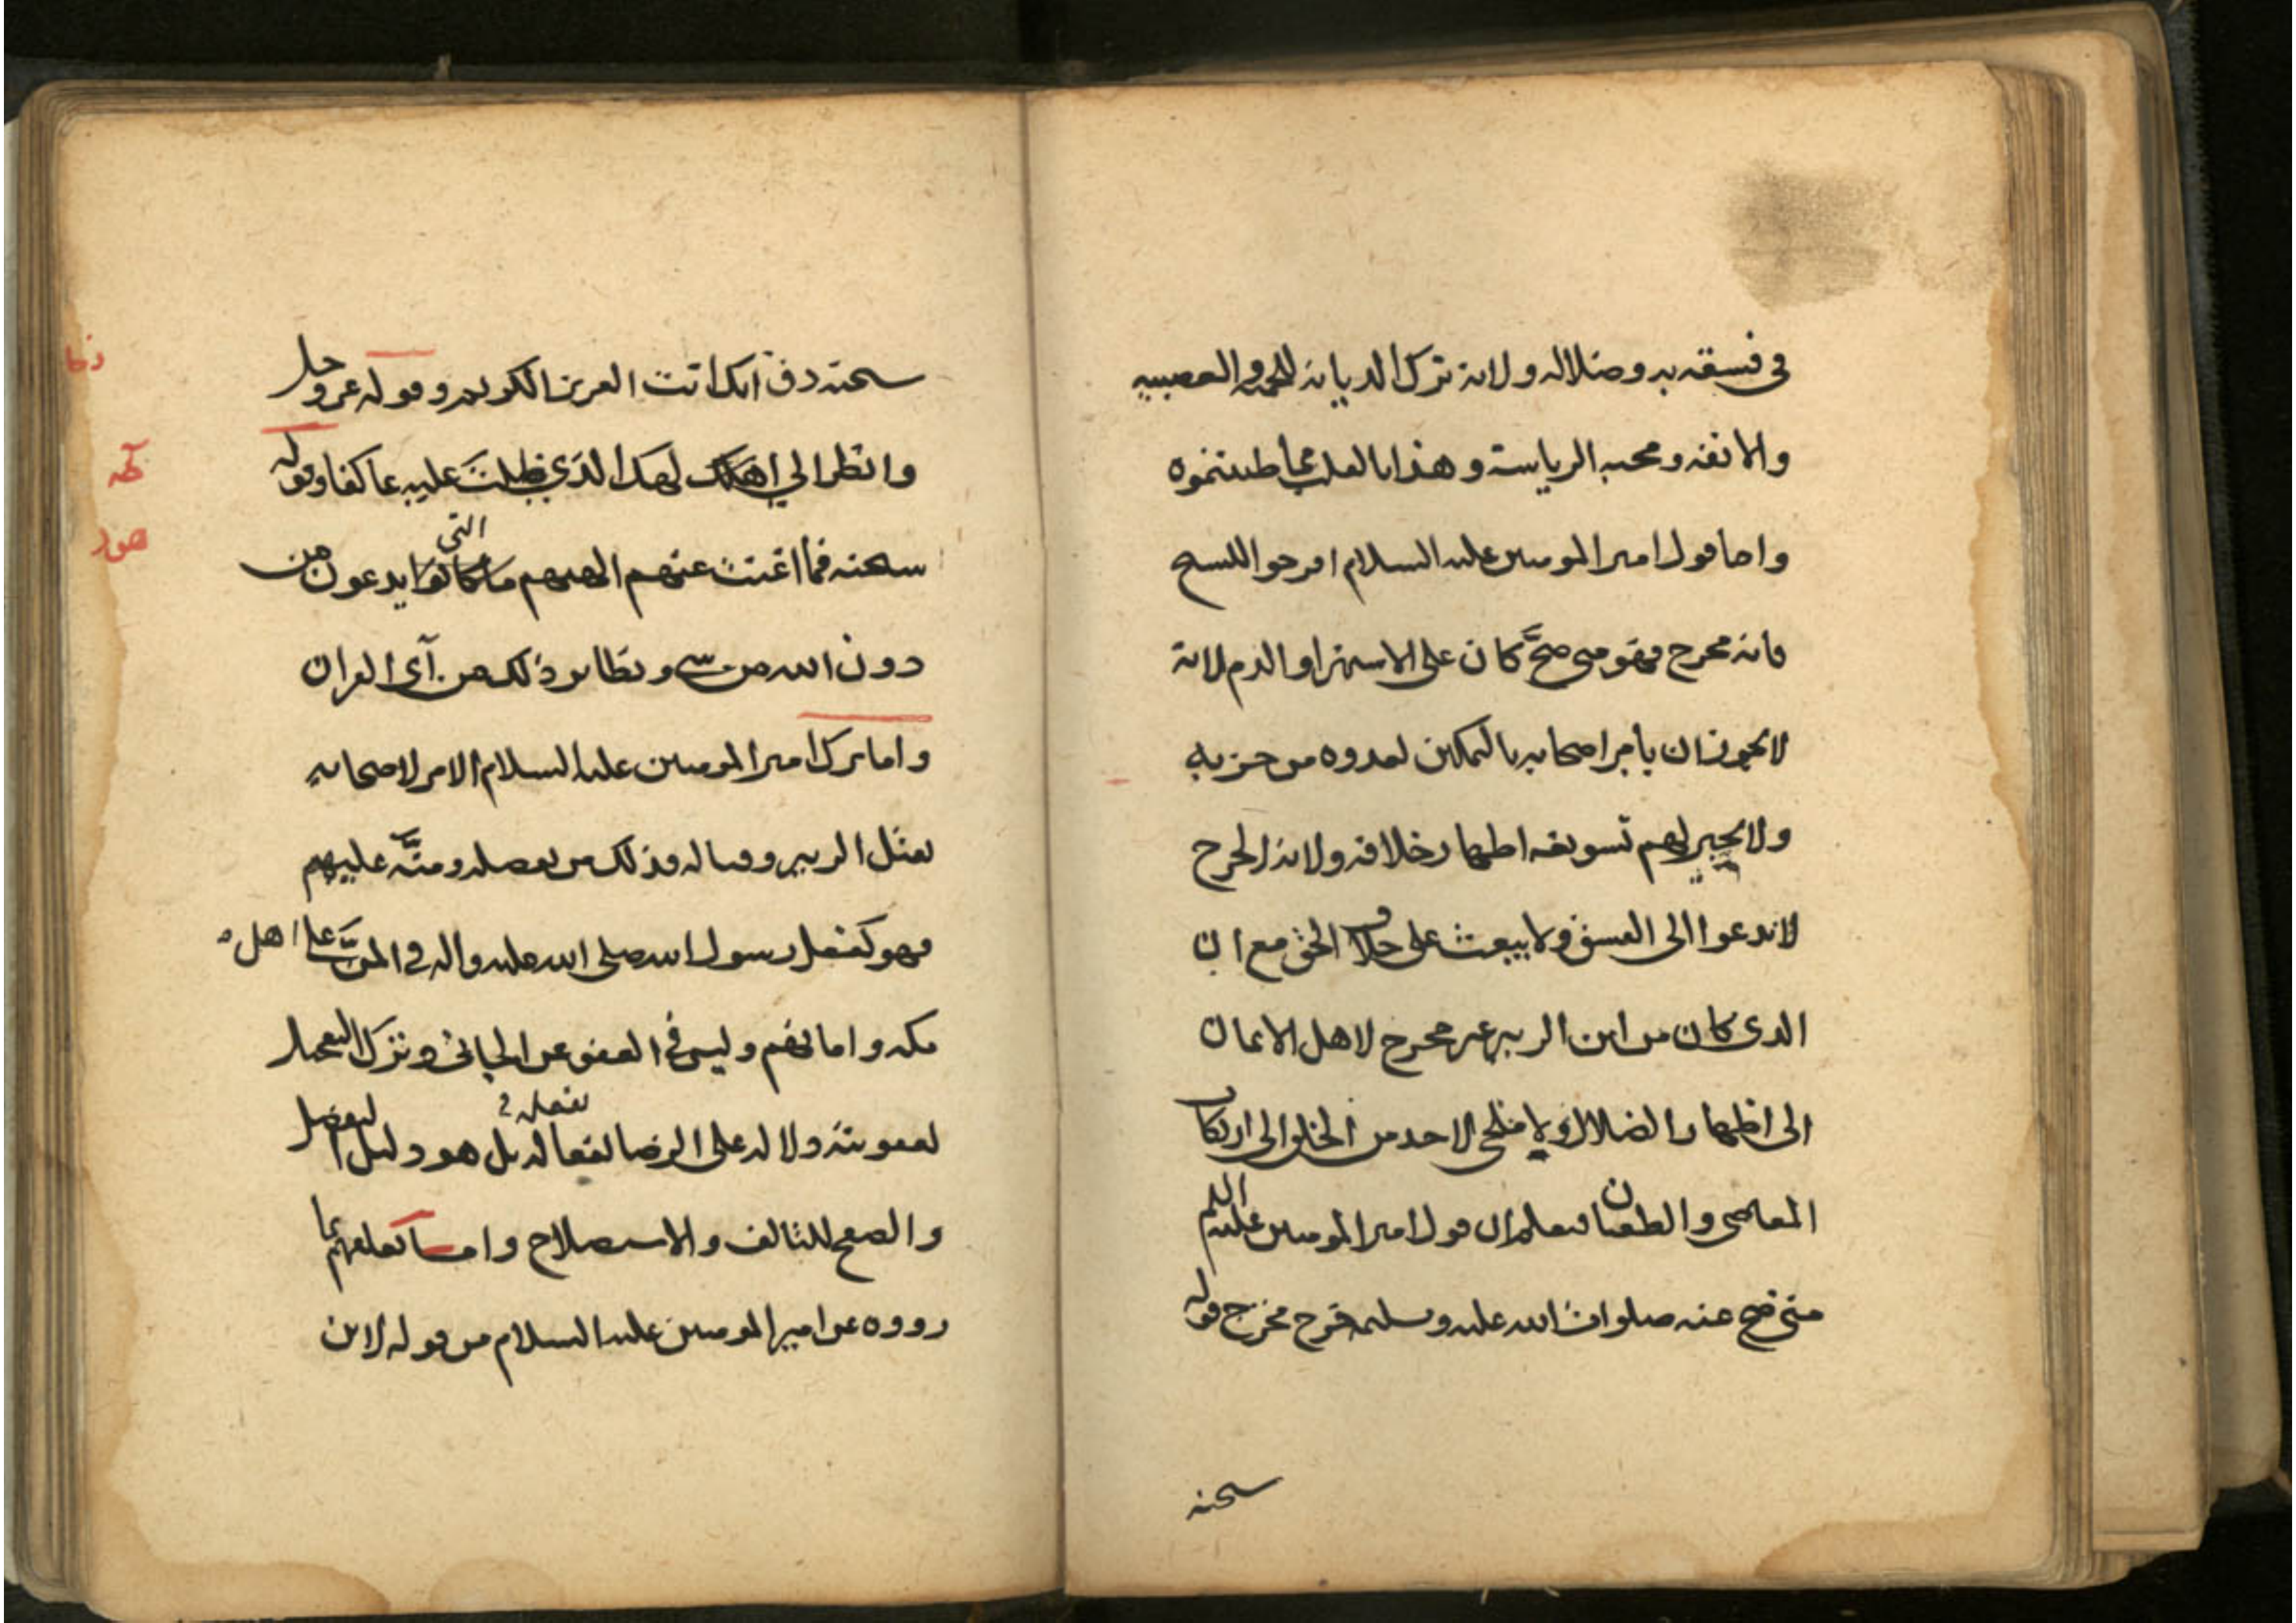 في فسقه به وضلاله ولانه ترك الديانة للحمية والعصبيه
والانفه ومحبه الرياسة وهذا بالعلب مما ظننتموه
واما قول امير المومنين عليه السلام افرحوا للسبح
فانه مخرج فهو متى صحَّ كان على الاستهزا والذم لانه
لا يجوز ان يأمر اصحابه بالتمكين لعدوه من حزبه
ولا يجيز لهم تسويغه اظهار خلافه ولانه لا يحرج
لا ندعوا الى الفسق ولا يبعث على خلاف الحق مع ان
الذي كان من ابن الزبير غير محرج لاهل الايمان
الى اظهار الضلال ولا ملجي لاحد من الخلق الى ارتكاب
المعاصي والطغيان فيعلم ان قول امير المومنين عليه السلم
متى صح عنه صلوات الله عليه وسلم خرج مخرج قوله
سبحنه
سبحنه ذق انك انت العزيز الكريم وقوله عز وجل
وانظر الي إلهك الذي ظلتَ عليه عاكفا وقوله
سبحنه فما اغنت عنهم الهتهم التي يدعون من
دون الله من شي ونظاير ذلك من آي القران
واما ترك امير المومنين عليه السلام الامر لاصحابه
بقتل الزبير وقتاله فذلك من تفضله ومنّه عليهم
فهو كفعل رسول الله صلى الله عليه واله في المنّ على اهل
مكه وامانهم وليس في العفو عن الجاني وترك التعجيل
لعقوبته دلاله على الرضا بفعاله بل هو دليل التفضل
بفعله
والصفح للتالف والاستصلاح واما تعلقهم بما
رووه عن امير المومنين عليه السلام من قوله لابن
دخا
طه
هود